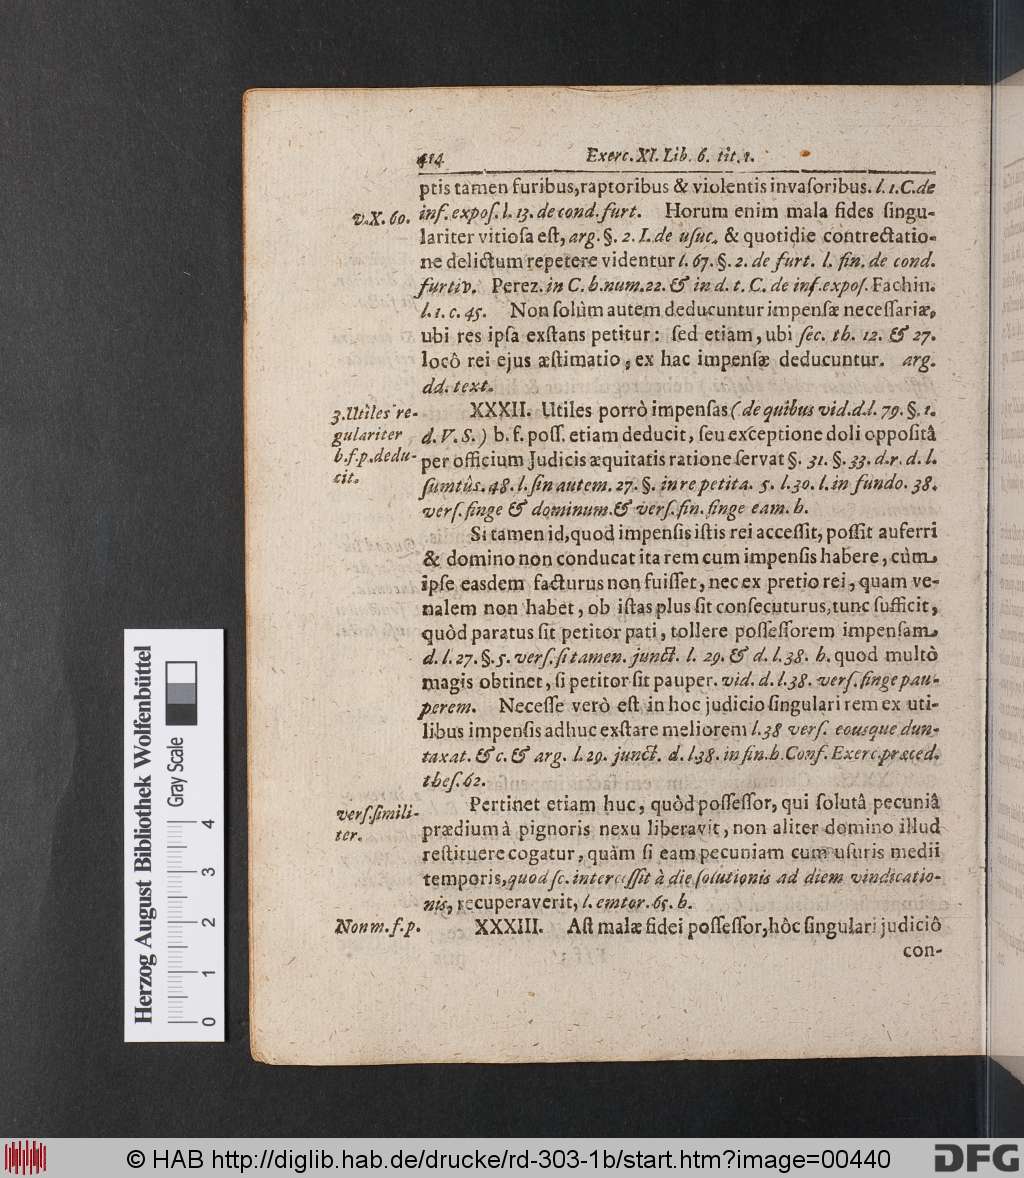 414 Exerc. XI. Lib. 6. tit. 1.
ptis tamen furibus, raptoribus & violentis invaſoribus. l. 1. C. de
v. X. 60. inf. expoſ. l. 13. de cond. furt. Horum enim mala fides ſingu-
lariter vitioſa eſt, arg. §. 2. I. de uſuc. & quotidie contrectatio-
ne delictum repetere videntur l. 67. §. 2. de furt. l. fin. de cond.
furtiv. Perez. in C. h. num. 22. & in d. t. C. de inf. expoſ. Fachin.
l. 1. c. 45. Non ſolùm autem deducuntur impenſæ neceſſariæ,
ubi res ipſa exſtans petitur: ſed etiam, ubi ſec. th. 12. & 27.
locô rei ejus æſtimatio, ex hac impenſæ deducuntur. arg.
dd. text.
3. Utiles re-
gulariter
b. f. p. dedu-
cit.
XXXII. Utiles porrò impenſas (de quibus vid. d. l. 79. §. 1.
d. V. S.) b. f. poſſ. etiam deducit, ſeu exceptione doli oppoſitâ
per officium Judicis æquitatis ratione ſervat §. 31. §. 33. d. r. d. l.
ſumtûs. 48. l. ſin autem. 27. §. in re petita. 5. l. 30. l. in fundo. 38.
verſ. finge & dominum. & verſ. fin. finge eam. h.
Si tamen id, quod impenſis iſtis rei acceſſit, poſſit auferri
& domino non conducat ita rem cum impenſis habere, cùm
ipſe easdem facturus non fuiſſet, nec ex pretio rei, quam ve-
nalem non habet, ob iſtas plus ſit conſecuturus, tunc ſufficit,
quòd paratus ſit petitor pati, tollere poſſeſſorem impenſam,
d. l. 27. §. 5. verſ. ſi tamen. junct. l. 29. & d. l. 38. h. quod multò
magis obtinet, ſi petitor ſit pauper. vid. d. l. 38. verſ. finge pau-
perem. Neceſſe verò eſt in hoc judicio ſingulari rem ex uti-
libus impenſis adhuc exſtare meliorem l. 38 verſ. eousque dun-
taxat. & c. & arg. l. 29. junct. d. l. 38. in fin. h. Conf. Exerc. præced.
theſ. 62.
verſ. ſimili-
ter.
Pertinet etiam huc, quòd poſſeſſor, qui ſolutâ pecuniâ
prædium à pignoris nexu liberavit, non aliter domino illud
reſtituere cogatur, quàm ſi eam pecuniam cum uſuris medii
temporis, quod ſc. interceſſit à die ſolutionis ad diem vindicatio-
nis, recuperaverit, l. emtor. 65. h.
Non m. f. p. XXXIII. Aſt malæ fidei poſſeſſor, hôc ſingulari judiciô
con-
Herzog August Bibliothek Wolfenbüttel
Gray Scale
0 1 2 3 4
© HAB http://diglib.hab.de/drucke/rd-303-1b/start.htm?image=00440
DFG